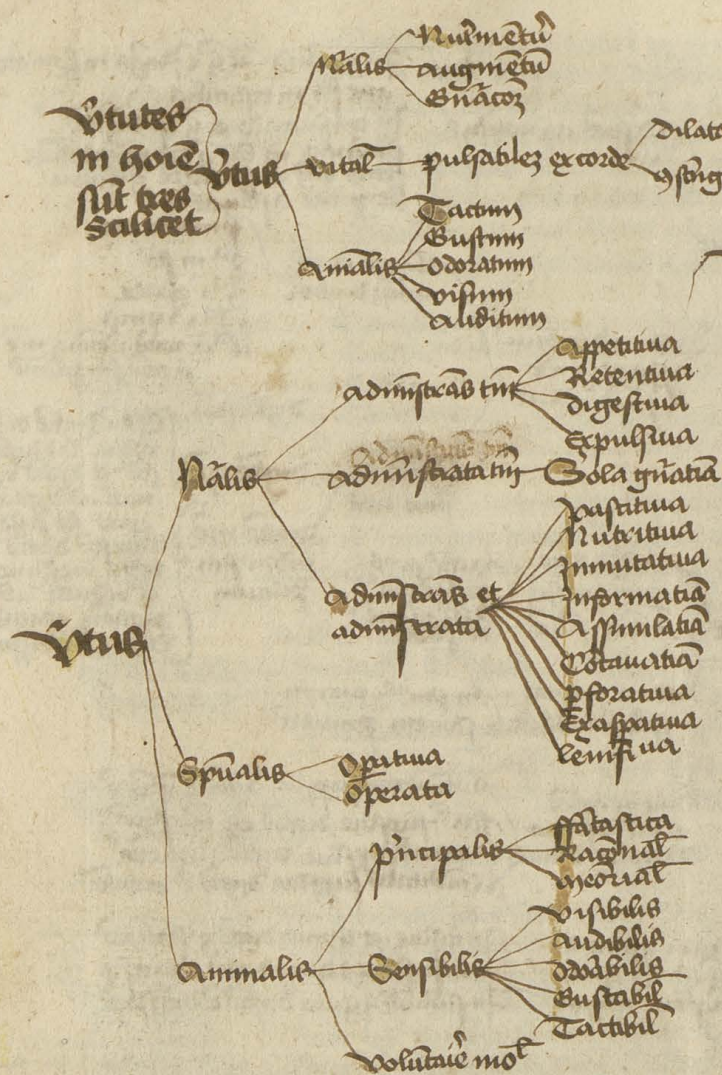 Vtutes
in hoiē
sūt tres
Scilicet
Vtus
Nālis
Nutmētū
Augmētū
Gnācoꝫ
vital
pulsabileꝫ ex corde
dilata
ꝯstrīg
Aniālis
Tactum
Gustum
Odoratum
visum
Auditum
Vtus
Nālis
Admīstrās tm̄
Appetitiua
Retentiua
digestiua
Expulsiua
Admīstrata tm̄
Sola gnātiā
Admīstrās et
admīstrata
pastitiua
Nutritiua
Inmutatiua
Informatiā
Assimilatiā
Cōcauatiā
ꝑforatiua
Exasꝑatiua
lenifiua
Spūalis
Opatiua
Operata
Animalis
pncipalis
ffātastica
Raconal
Meorial
Sensibilis
visibilis
Audibilis
Odorābilis
Gustabil
Tactibil
volūtarie mol